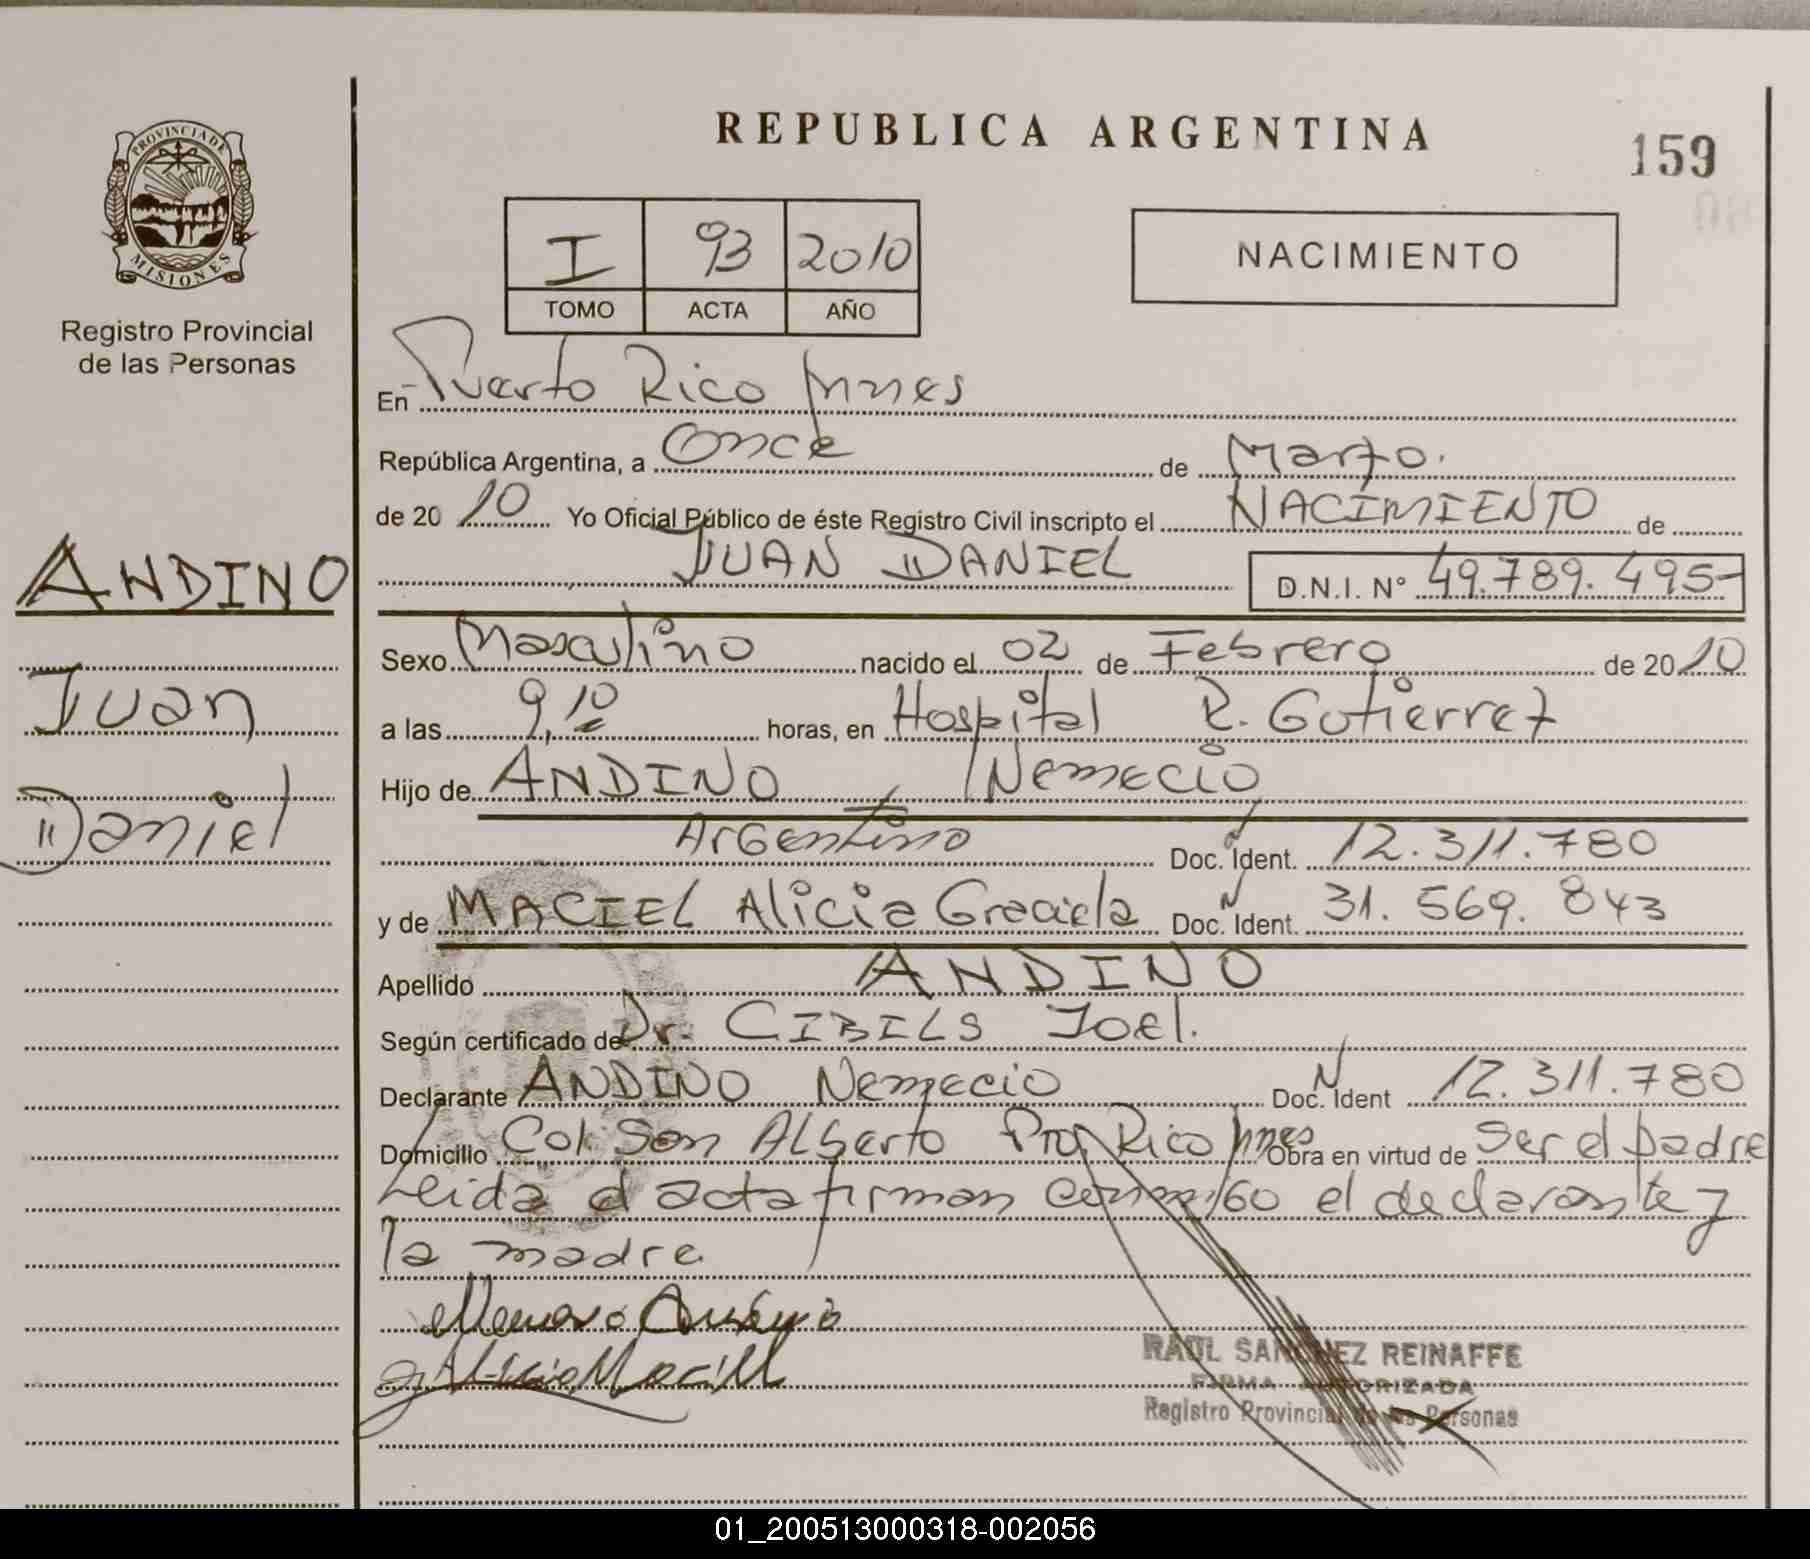 REPUBLICA ARGENTINA
159
PROVINCIA DE
MISIONES
Registro Provincial
de las Personas
I 93 2010
TOMO ACTA AÑO
NACIMIENTO
En Puerto Rico Mnes
República Argentina, a Once de Marzo.
de 20 10 Yo Oficial Público de éste Registro Civil inscripto el NACIMIENTO de
JUAN DANIEL D.N.I. N° 49.789.495-
ANDINO
Juan
Daniel
Sexo Masculino nacido el 02 de Febrero de 20 10
a las 9,10 horas, en Hospital R. Gutierrez
Hijo de ANDINO Nemecio
Argentino Doc. Ident. 12.311.780
y de MACIEL Alicia Graciela Doc. Ident. 31.569.843
Apellido ANDINO
Según certificado de Dr. CIBILS Joel.
Declarante ANDINO Nemecio Doc. Ident 12.311.780
Domicilio Col. San Alberto Pto Rico Mnes Obra en virtud de ser el padre
Leida el acta firman conmigo el declarante y
la madre
RAUL SANCHEZ REINAFFE
FIRMA AUTORIZADA
Registro Provincial de las Personas
01_200513000318-002056